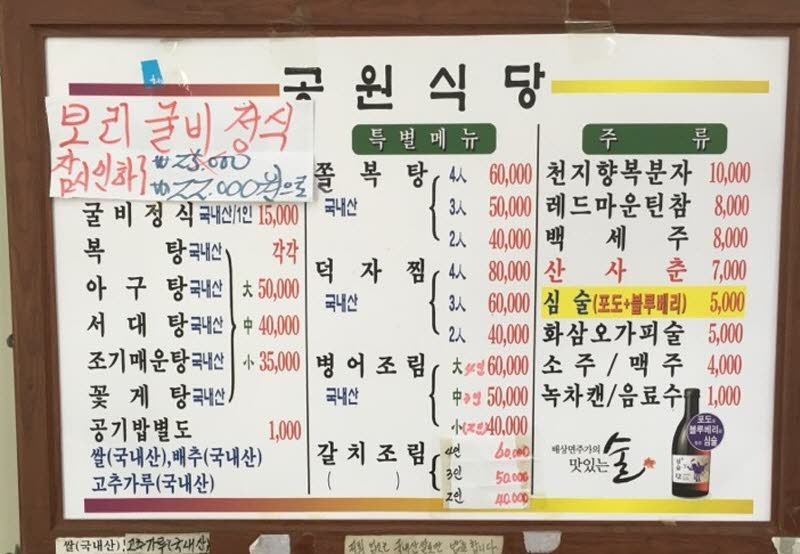 공원식당
보리굴비정식
잠시인하
₩25.000
₩22.000원으로
굴비정식 국내산/1인 15,000
복탕 국내산 각각
아구탕 국내산 大 50,000
서대탕 국내산 中 40,000
조기매운탕 국내산 小 35,000
꽃게탕 국내산
공기밥별도 1,000
쌀(국내산),배추(국내산)
고추가루(국내산)
특별메뉴
쫄복탕 4人 60,000
국내산 3人 50,000
2人 40,000
덕자찜 4人 80,000
국내산 3人 60,000
2人 40,000
병어조림 大 4인 60,000
국내산 中 3인 50,000
小(2인) 40,000
갈치조림 4인 60,000
( ) 3인 50,000
2인 40,000
주류
천지향복분자 10,000
레드마운틴참 8,000
백세주 8,000
산사춘 7,000
심술(포도+블루베리) 5,000
화삼오가피술 5,000
소주/맥주 4,000
녹차캔/음료수 1,000
배상면주가의
맛있는 술
포도와
블루베리의
심술
쌀(국내산)!고추가루(국내산)